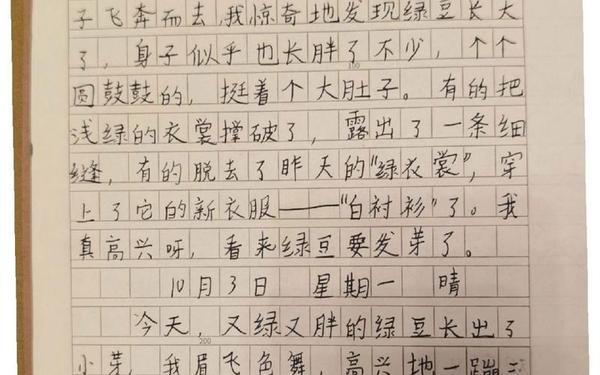 子飞奔而去,我惊奇地发现绿豆长大
了，身子似乎也长胖了不少，个个
100
圆鼓鼓的，挺着个大肚子。有的把
浅绿的衣裳撑破了，露出了一条细
缝，有的脱去了昨天的“绿衣裳”，穿
上了它的新衣服——“白衬衫”了。我
真高兴呀，看来绿豆要发芽了。
10月3日 星期一 晴
今天，又绿又胖的绿豆长出了
200
小芽，我眉飞色舞，高兴地一蹦三